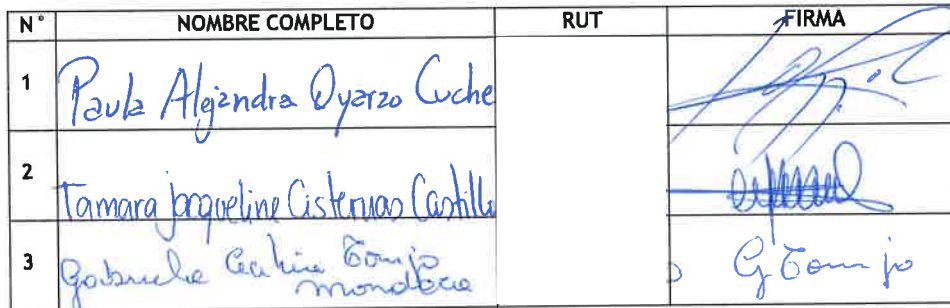 N° NOMBRE COMPLETO RUT FIRMA
1 Paula Alejandra Oyarzo Cuche
2 Tamara Jaqueline Cisternas Castillo
3 Gabriela Cecilia Tomjo G Tomjo
Mondaca